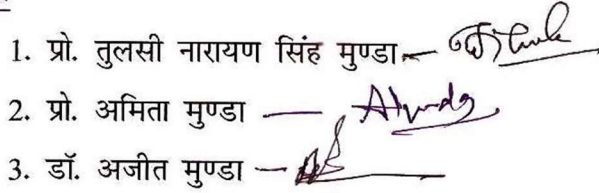 1. प्रो. तुलसी नारायण सिंह मुण्डा —
2. प्रो. अमिता मुण्डा —
3. डॉ. अजीत मुण्डा —